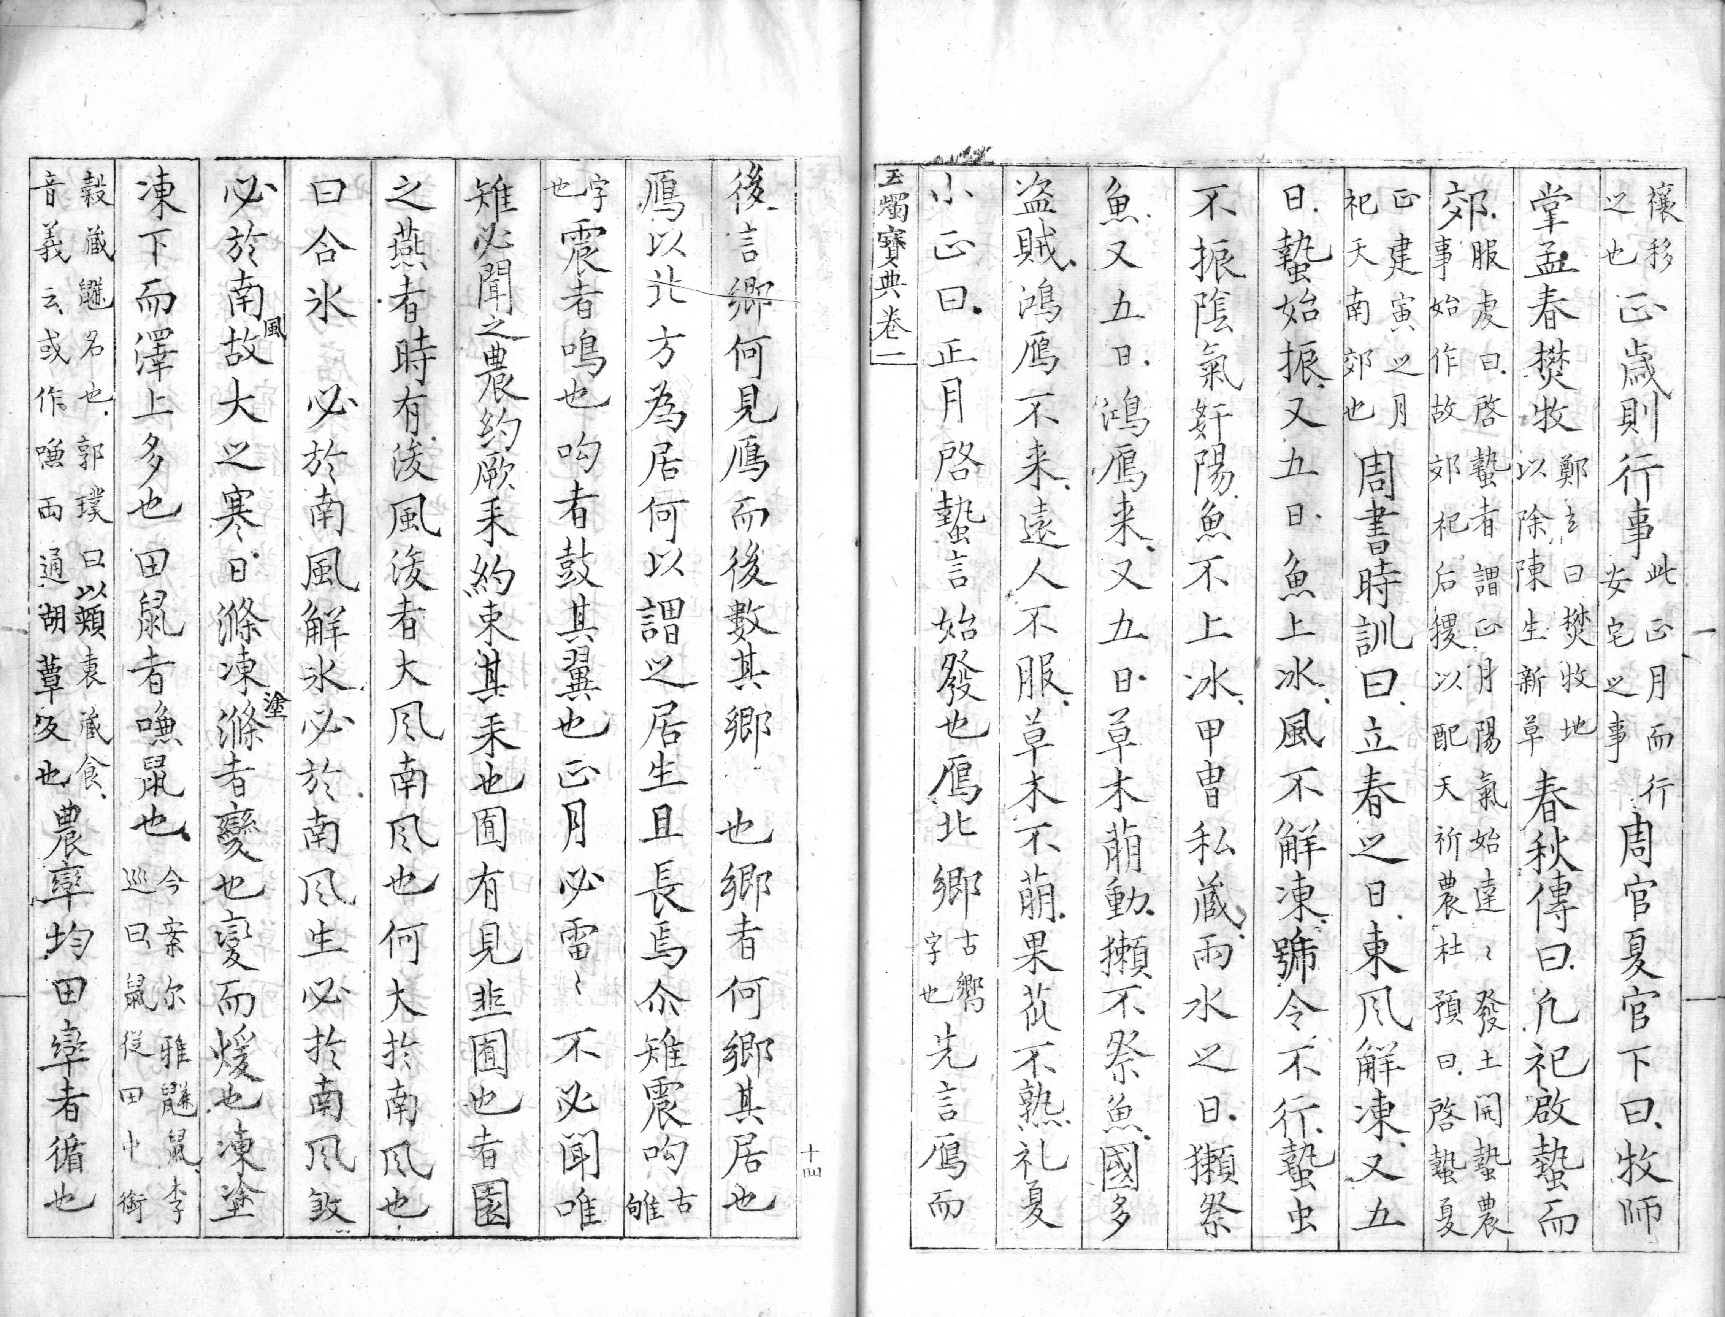 禳移之也正歲則行事此正月而行安宅之事周官夏官下曰牧師
掌孟春焚牧鄭玄曰焚牧地以除陳生新草春秋傳曰凡祀啟蟄而
郊服虔曰啓蟄者謂正月陽氣始達〻發土開蟄農事始作故郊祀后稷以配天祈農杜預曰啓蟄夏
正建寅之月祀天南郊也周書時訓曰立春之日東風解凍又五
日蟄始振又五日魚上氷風不解凍號令不行蟄虫
不振陰氣奸陽魚不上冰甲冑私蔵雨水之日獺祭
魚又五日鴻鴈来又五日草木萠動獺不祭魚國多
盗賊鴻鴈不来遠人不服草木不萠果苽不熟礼夏
小正曰正月啓蟄言始發也鴈北鄉古嚮字也先言鴈而
玉燭寶典卷一
後言鄉何見鴈而後數其鄉也鄉者何鄉其居也
鴈以北方為居何以謂之居生且長焉尒雉震呴古雊
字也震者鳴也呴者鼓其翼也正月必雷〻不必聞唯
雉必聞之農約厥耒約束其耒也囿有見韭囿也者園
之燕者時有浚風浚者大風南風也何大扵南風也
曰合氷必扵南風解氷必扵南風生必扵南風故
必於南風故大之寒日滌凍滌者變也變而煖也凍塗塗
凍下而澤上多也田鼠者嗛鼠也今案尔雅鼸鼠李巡曰鼠従田中銜
穀蔵鼸名也郭璞曰以頰裹蔵食音義云或作嗛兩通胡蕈反也農率均田率者循也
十四